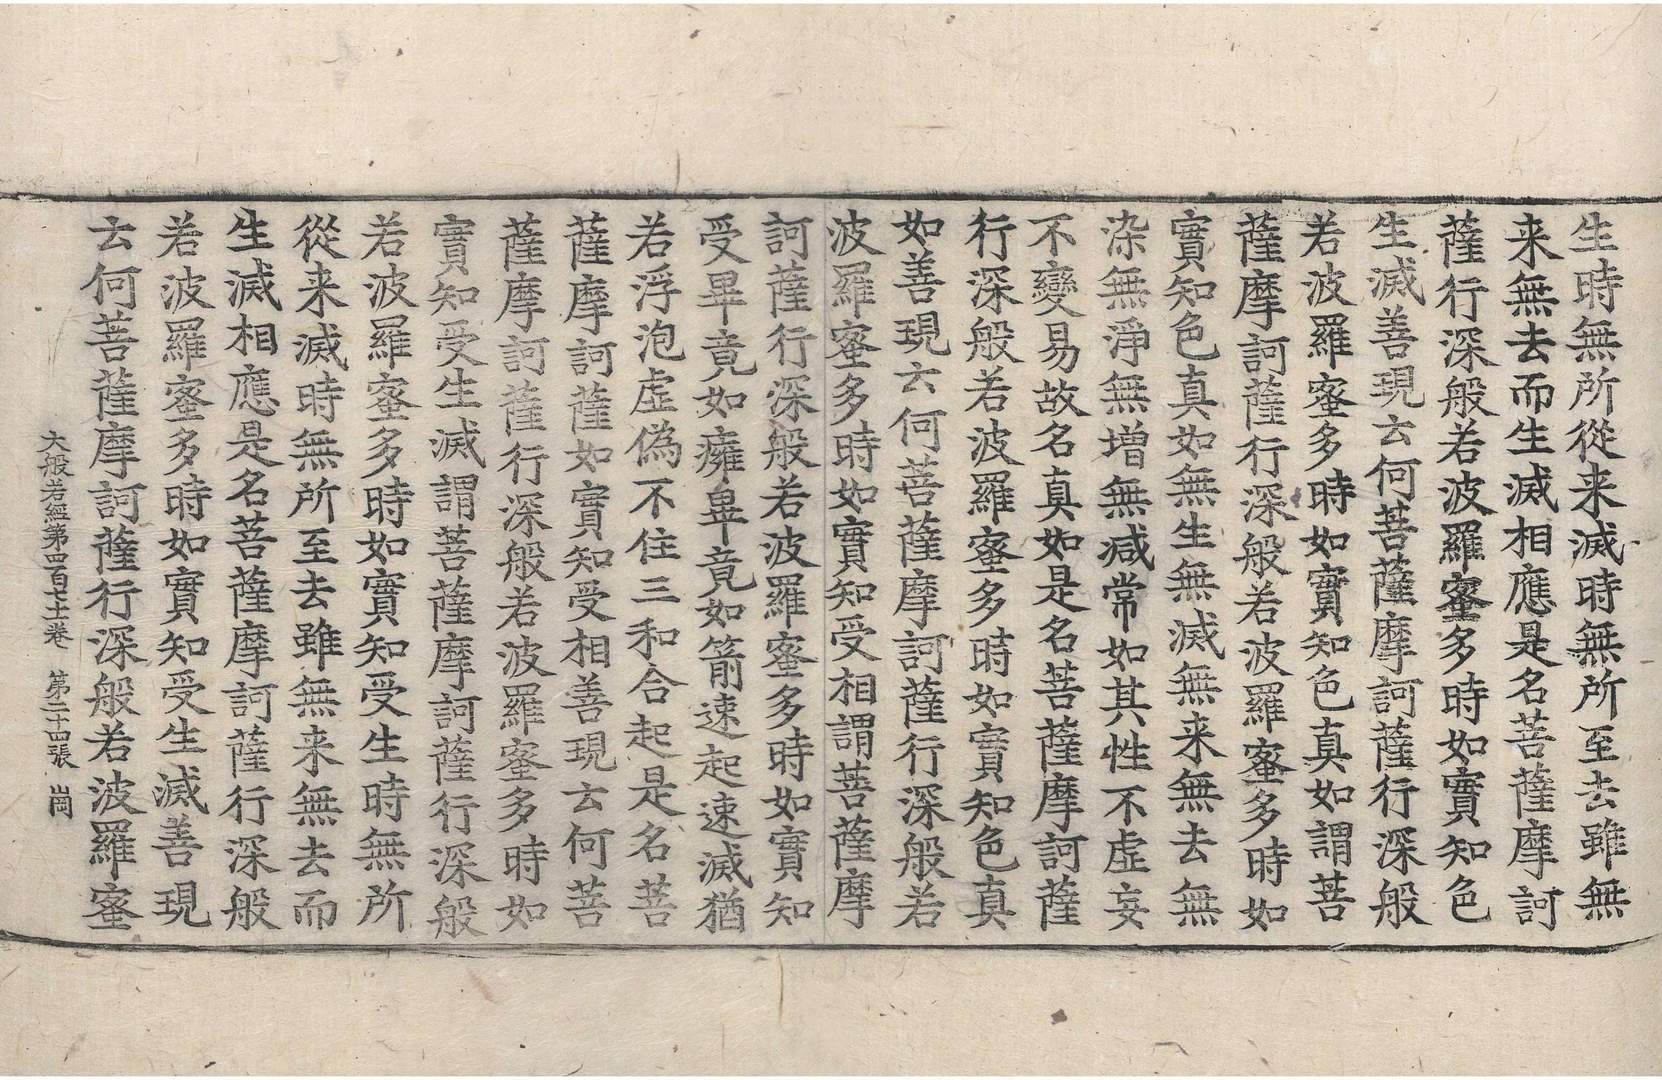 生時無所從来滅時無所至去雖無
来無去而生滅相應是名菩薩摩訶
薩行深般若波羅蜜多時如實知色
生滅善現云何菩薩摩訶薩行深般
若波羅蜜多時如實知色真如謂菩
薩摩訶薩行深般若波羅蜜多時如
實知色真如無生無滅無来無去無
染無淨無增無減常如其性不虛妄
不變易故名真如是名菩薩摩訶薩
行深般若波羅蜜多時如實知色真
如善現云何菩薩摩訶薩行深般若
波羅蜜多時如實知受相謂菩薩摩
訶薩行深般若波羅蜜多時如實知
受畢竟如癰畢竟如箭速起速滅猶
若浮泡虛偽不住三和合起是名菩
薩摩訶薩如實知受相善現云何菩
薩摩訶薩行深般若波羅蜜多時如
實知受生滅謂菩薩摩訶薩行深般
若波羅蜜多時如實知受生時無所
從来滅時無所至去雖無来無去而
生滅相應是名菩薩摩訶薩行深般
若波羅蜜多時如實知受生滅善現
云何菩薩摩訶薩行深般若波羅蜜
大般若經第四百七十二卷 第二十四張 崗